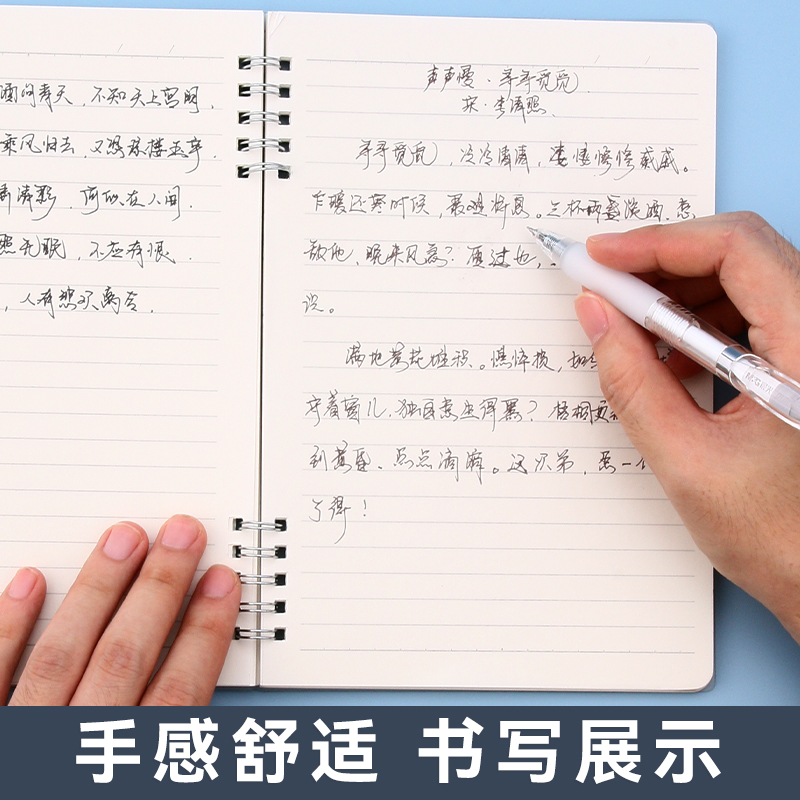 酒问青天，不知天上宫阙，
乘风归去，又恐琼楼玉宇，
弄清影，何似在人间，
照无眠，不应有恨，
，人有悲欢离合，
声声慢·寻寻觅觅
宋·李清照
寻寻觅觅，冷冷清清，凄凄惨惨戚戚。
乍暖还寒时候，最难将息。三杯两盏淡酒，怎
敌他、晚来风急？雁过也，
识。
满地黄花堆积。憔悴损，如今
守着窗儿，独自怎生得黑？梧桐更
到黄昏、点点滴滴。这次第，怎一个
了得！
M&G
手感舒适 书写展示